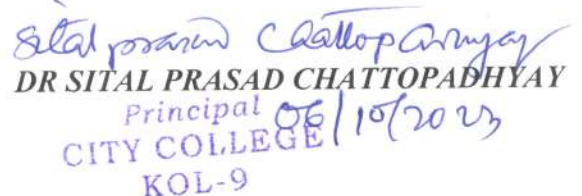 Sital prasad Chattopadhyay
DR SITAL PRASAD CHATTOPADHYAY
Principal 06/10/2023
CITY COLLEGE
KOL-9